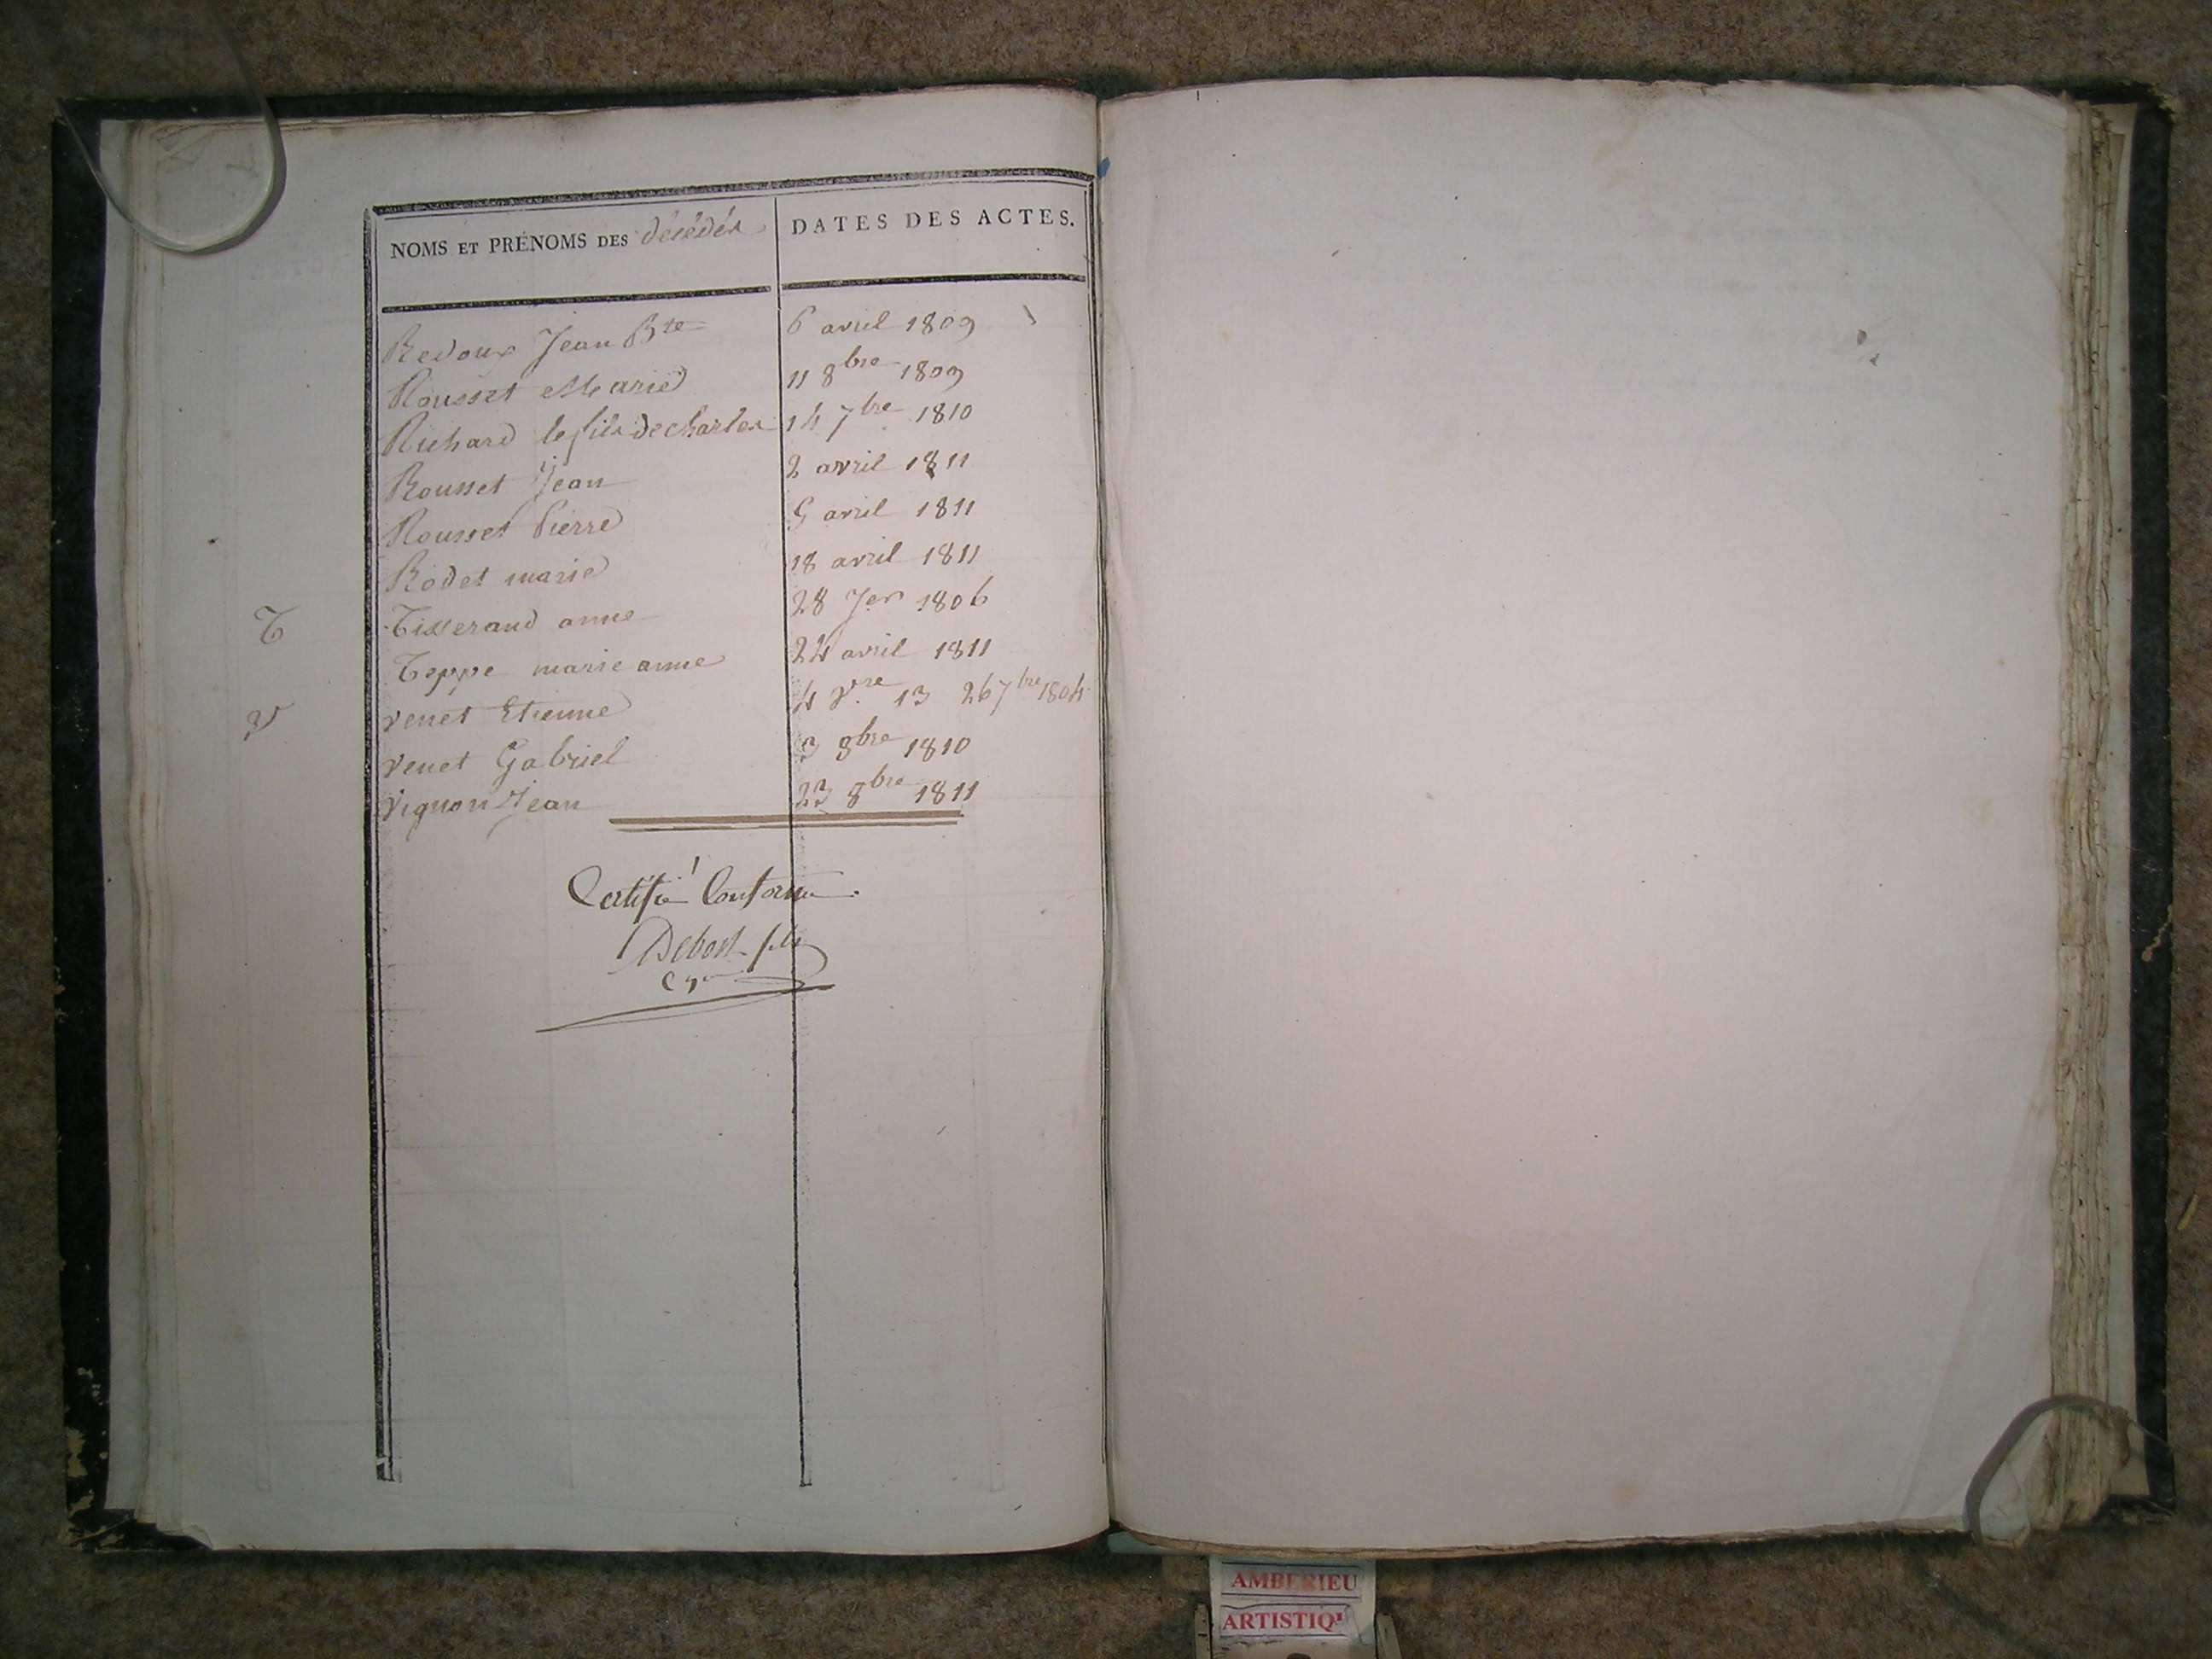 NOMS ET PRÉNOMS DES décédés DATES DES ACTES.
Redoux Jean Bte 6 avril 1809
Rousset Marie 11 8bre 1809
Richard le fils de charles 14 7bre 1810
Rousset Jean 2 avril 1811
Rousset Pierre 5 avril 1811
Rodet marie 18 avril 1811
T Tisserand anne 28 Jer 1806
Teppe marie anne 24 avril 1811
V venet Etienne 4 vre 13 26 7bre 1804
venet Gabriel 3 8bre 1810
vignon Jean 22 8bre 1811
Certifié Conforme
Debost fils
AMBERIEU
ARTISTIQU